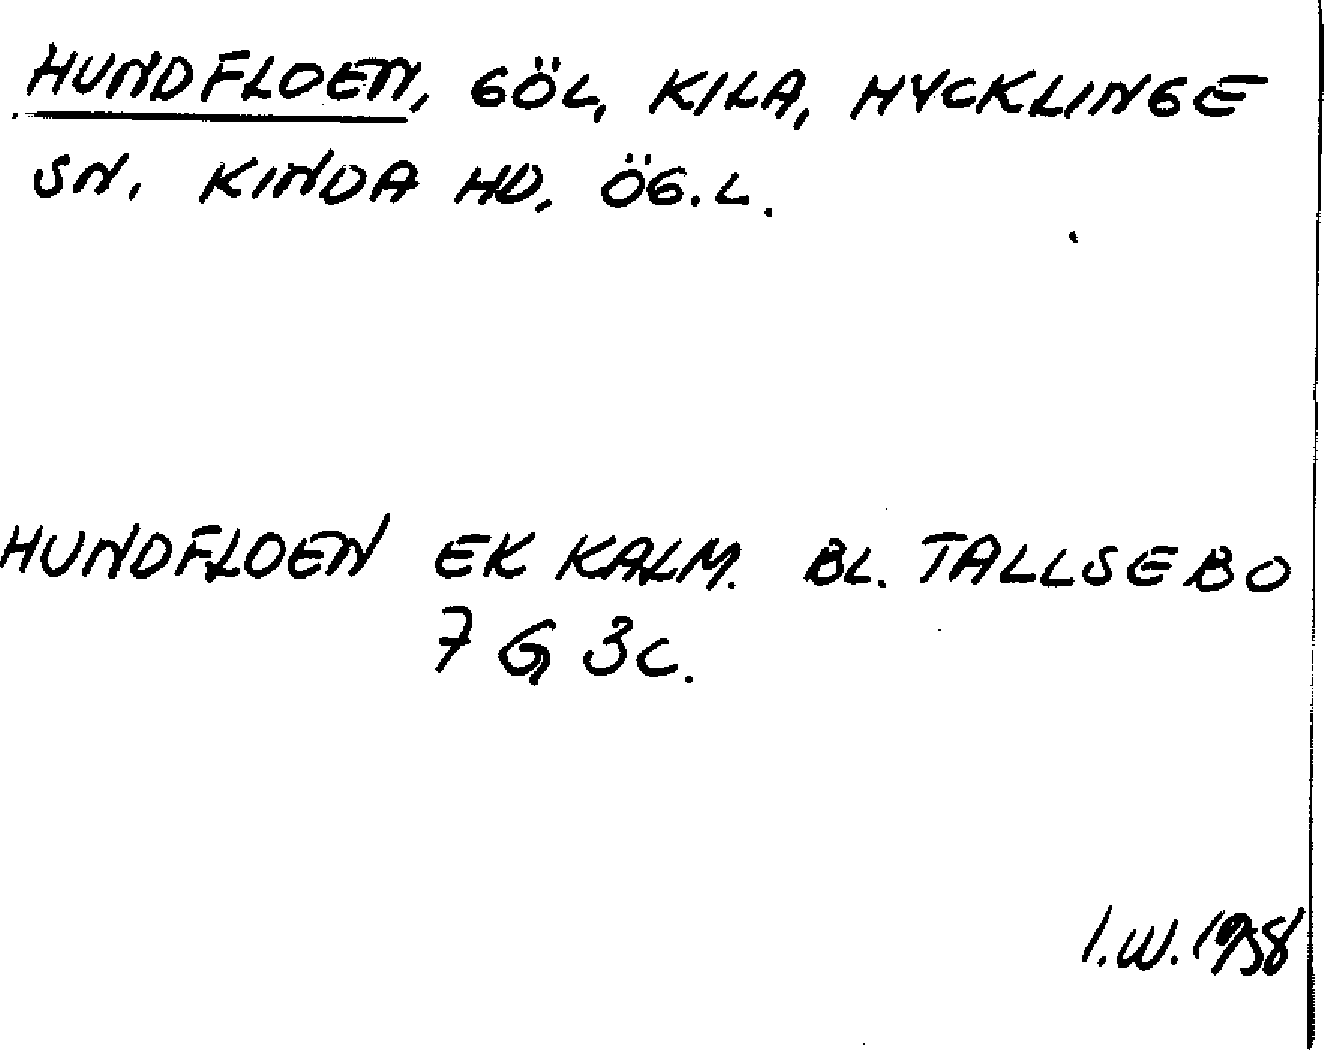 HUNDFLOEN, GÖL, KILA, HYCKLINGE
SN. KINDA HD, ÖG.L.
HUNDFLOEN EK KALM. BL. TALLSEBO
7 G 3C.
I.W. 1958